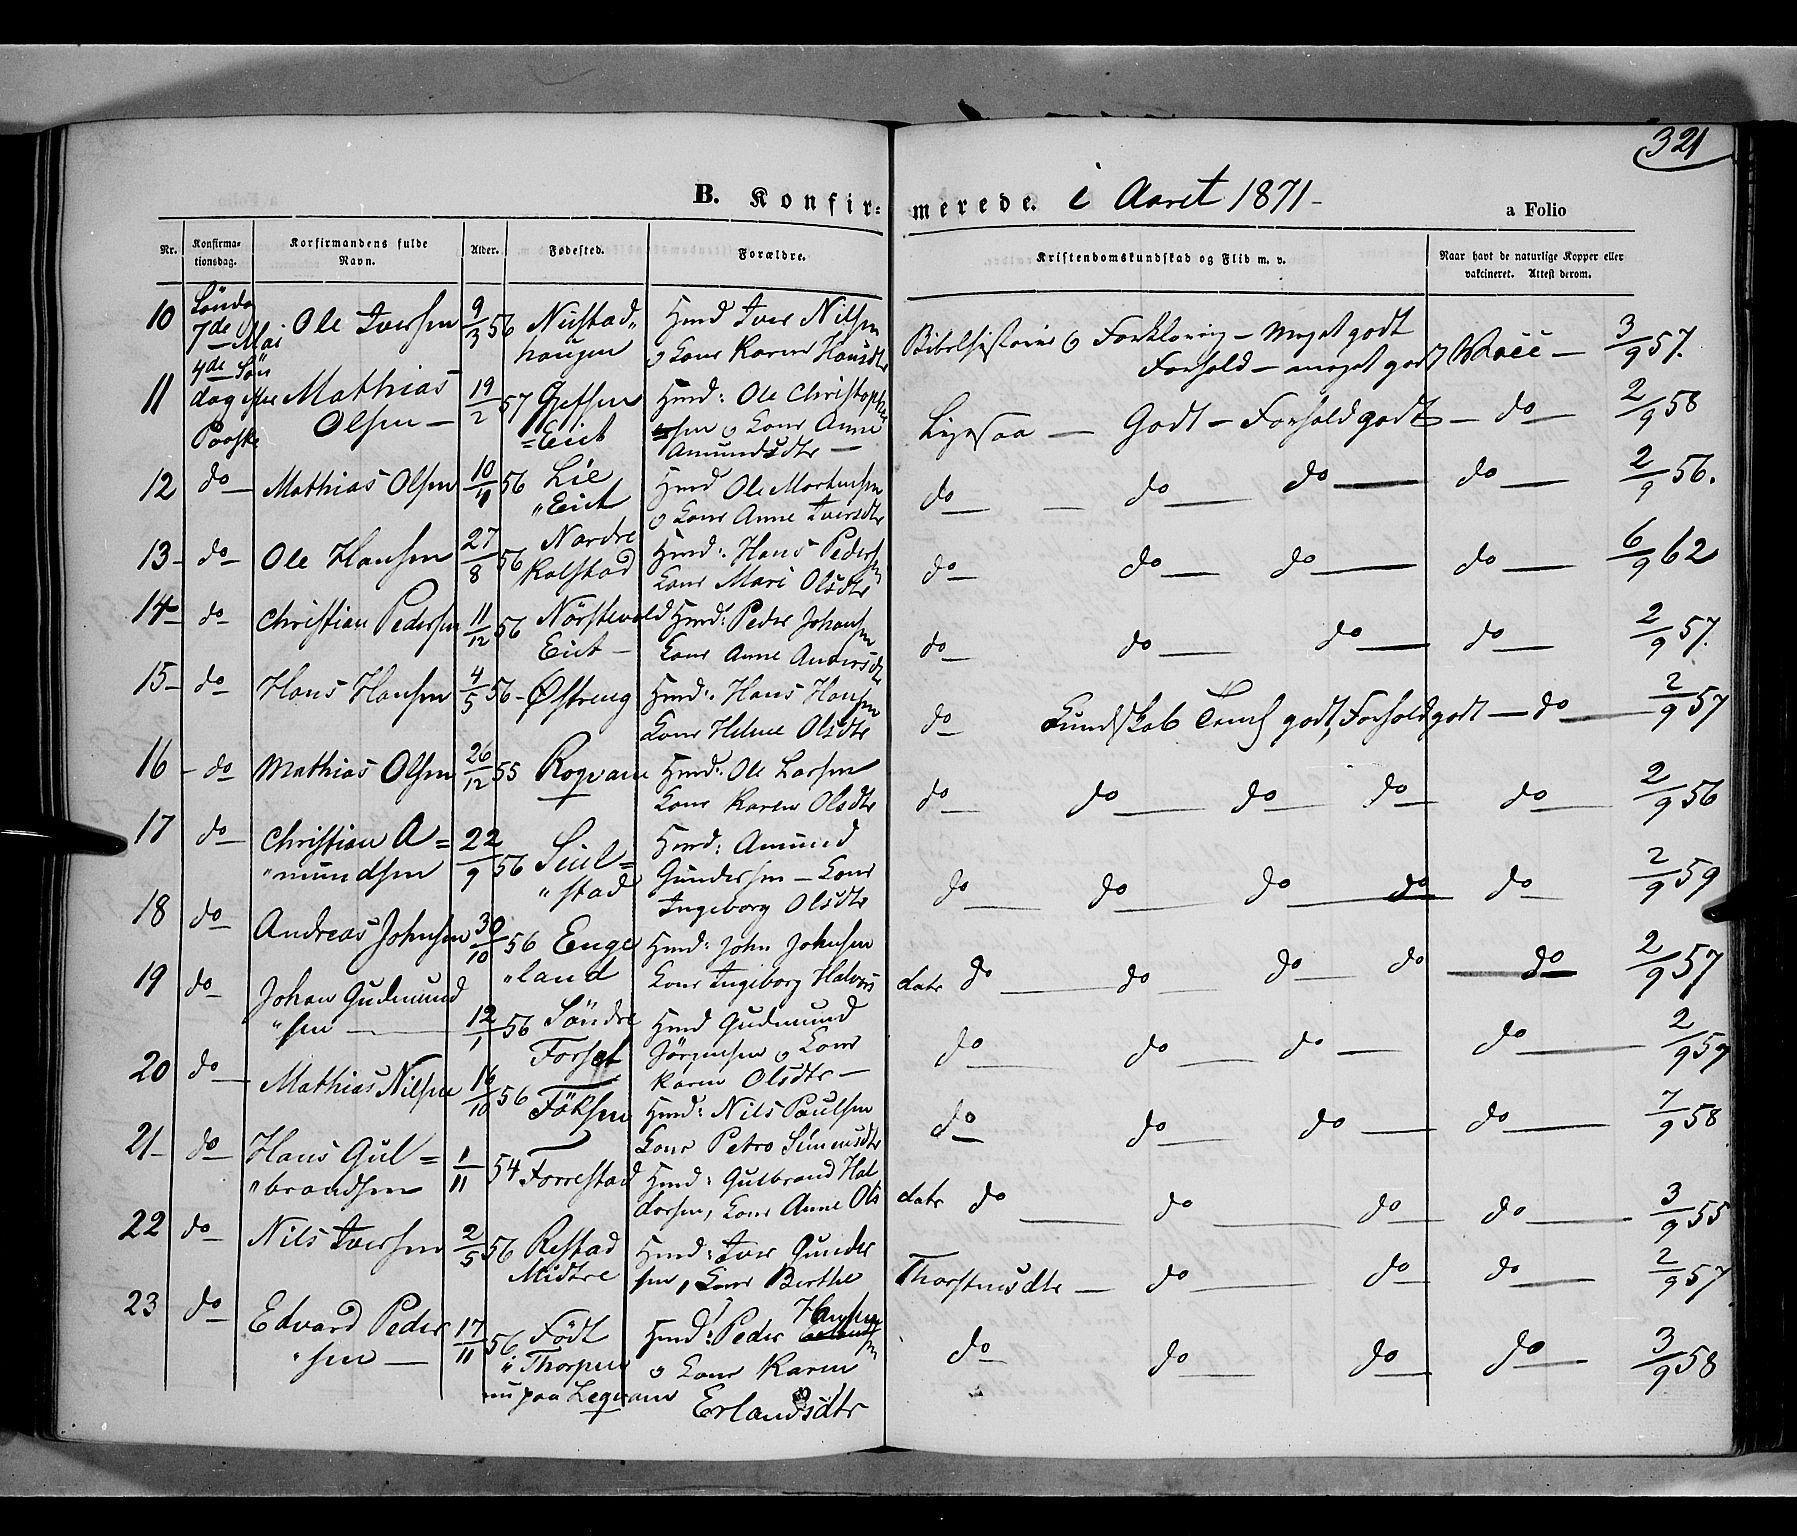 321
B. Konfir-merede. i Aaret 1871-
a Folio
Nr. Konfirmationsdag. Korfirmandens fulde Navn. Alder. Fødested. Forældre. Kristendomskundskab og Flid m. v. Naar havt de naturlige Kopper eller vakcineret. Attest derom.
10 Söndag 7de Mai Ole Iversen 9/3 56 Nustad"haugen
Hmd Iver Nilsen o Kone Karen Hansdtr
Bibelhistorie o Forklaring - Meget godt
Forhold - meget godt Vacc - 3/9 57.
11 4de Söndag efter Paaske Mathias Olsen - 19/2 57 =Eiet
Hmd: Ole Christophersen o Kone Anne Amundsdtr -
Ligesaa - Godt - Forhold godt - do - 2/9 58
12 do - Mathias Olsen 10/11 56 Lie "Eiet
Hmd Ole Mortensen o Kone Anne Iversdtr
do - do - do - do - 2/9 56.
13 - do - Ole Hansen 27/8 56 Nordre Kalstad
Hmd: Hans Pedersen Kone Mari Olsdtr
do - do - do - do - 6/9 62
14 - do - Christian Pedersen 11/12 56 Nörstevold Eiet -
Hmd: Peder Johansen Kone Anne Andersdtr
do - do - do - do - 2/9 57.
15 - do - Hans Hansen 4/5 56 - Østreng
Hmd: Hans Hansen Kone Helene Olsdtr
do - Kundskab Temel godt, Forhold godt - do - 2/9 57
16 - do Mathias Olsen 26/12 55 Roqvam
Hmd: Ole Larsen Kone Karen Olsdtr
do - do - do - do - do - 2/9 56
17 do - Christian A="mundsen 22/9 56 Suul="stad
Hmd: Amund Gundersen - Kone Ingeborg Olsdtr
do - do - do - do - do - 2/9 59
18 do - Andreas Johnsen 30/10 56 Enge"land
Hmd: John Johnsen Kone Ingeborg Halvors datr
do - do - do - do - do 2/9 57
19 do - Johan Gudmund"sen - 12/1 56 Söndre Forset
Hmd Gudmund Jörgensen o Kone Karen Olsdtr -
do - do - do - do - 2/9 57
20 do - Mathias Nilsen 16/10 56 Föksen
Hmd: Nils Paulsen Kone Petro Simensdtr
do - do - do - do - 7/9 58
21 - do - Hans Gul="brandsen 1/11 54 Forrestad
Hmd: Gulbrand Haldorsen, Kone Anne Ols datr
do - do - do - do - 3/9 55
22 do - Nils Iversen 2/5 56 Restad Midtre
Hmd: Iver Gundersen, Kone Berthe Thorstensdtr -
do - do - do - 2/9 57
23 do - Edvard Peder"sen - 17/11 56 Födt i Thorpen nu paa Leqvam
Hmd: Peder Hansen o Kone Karen Erlandsdtr
do - do - do - do - 3/9 58